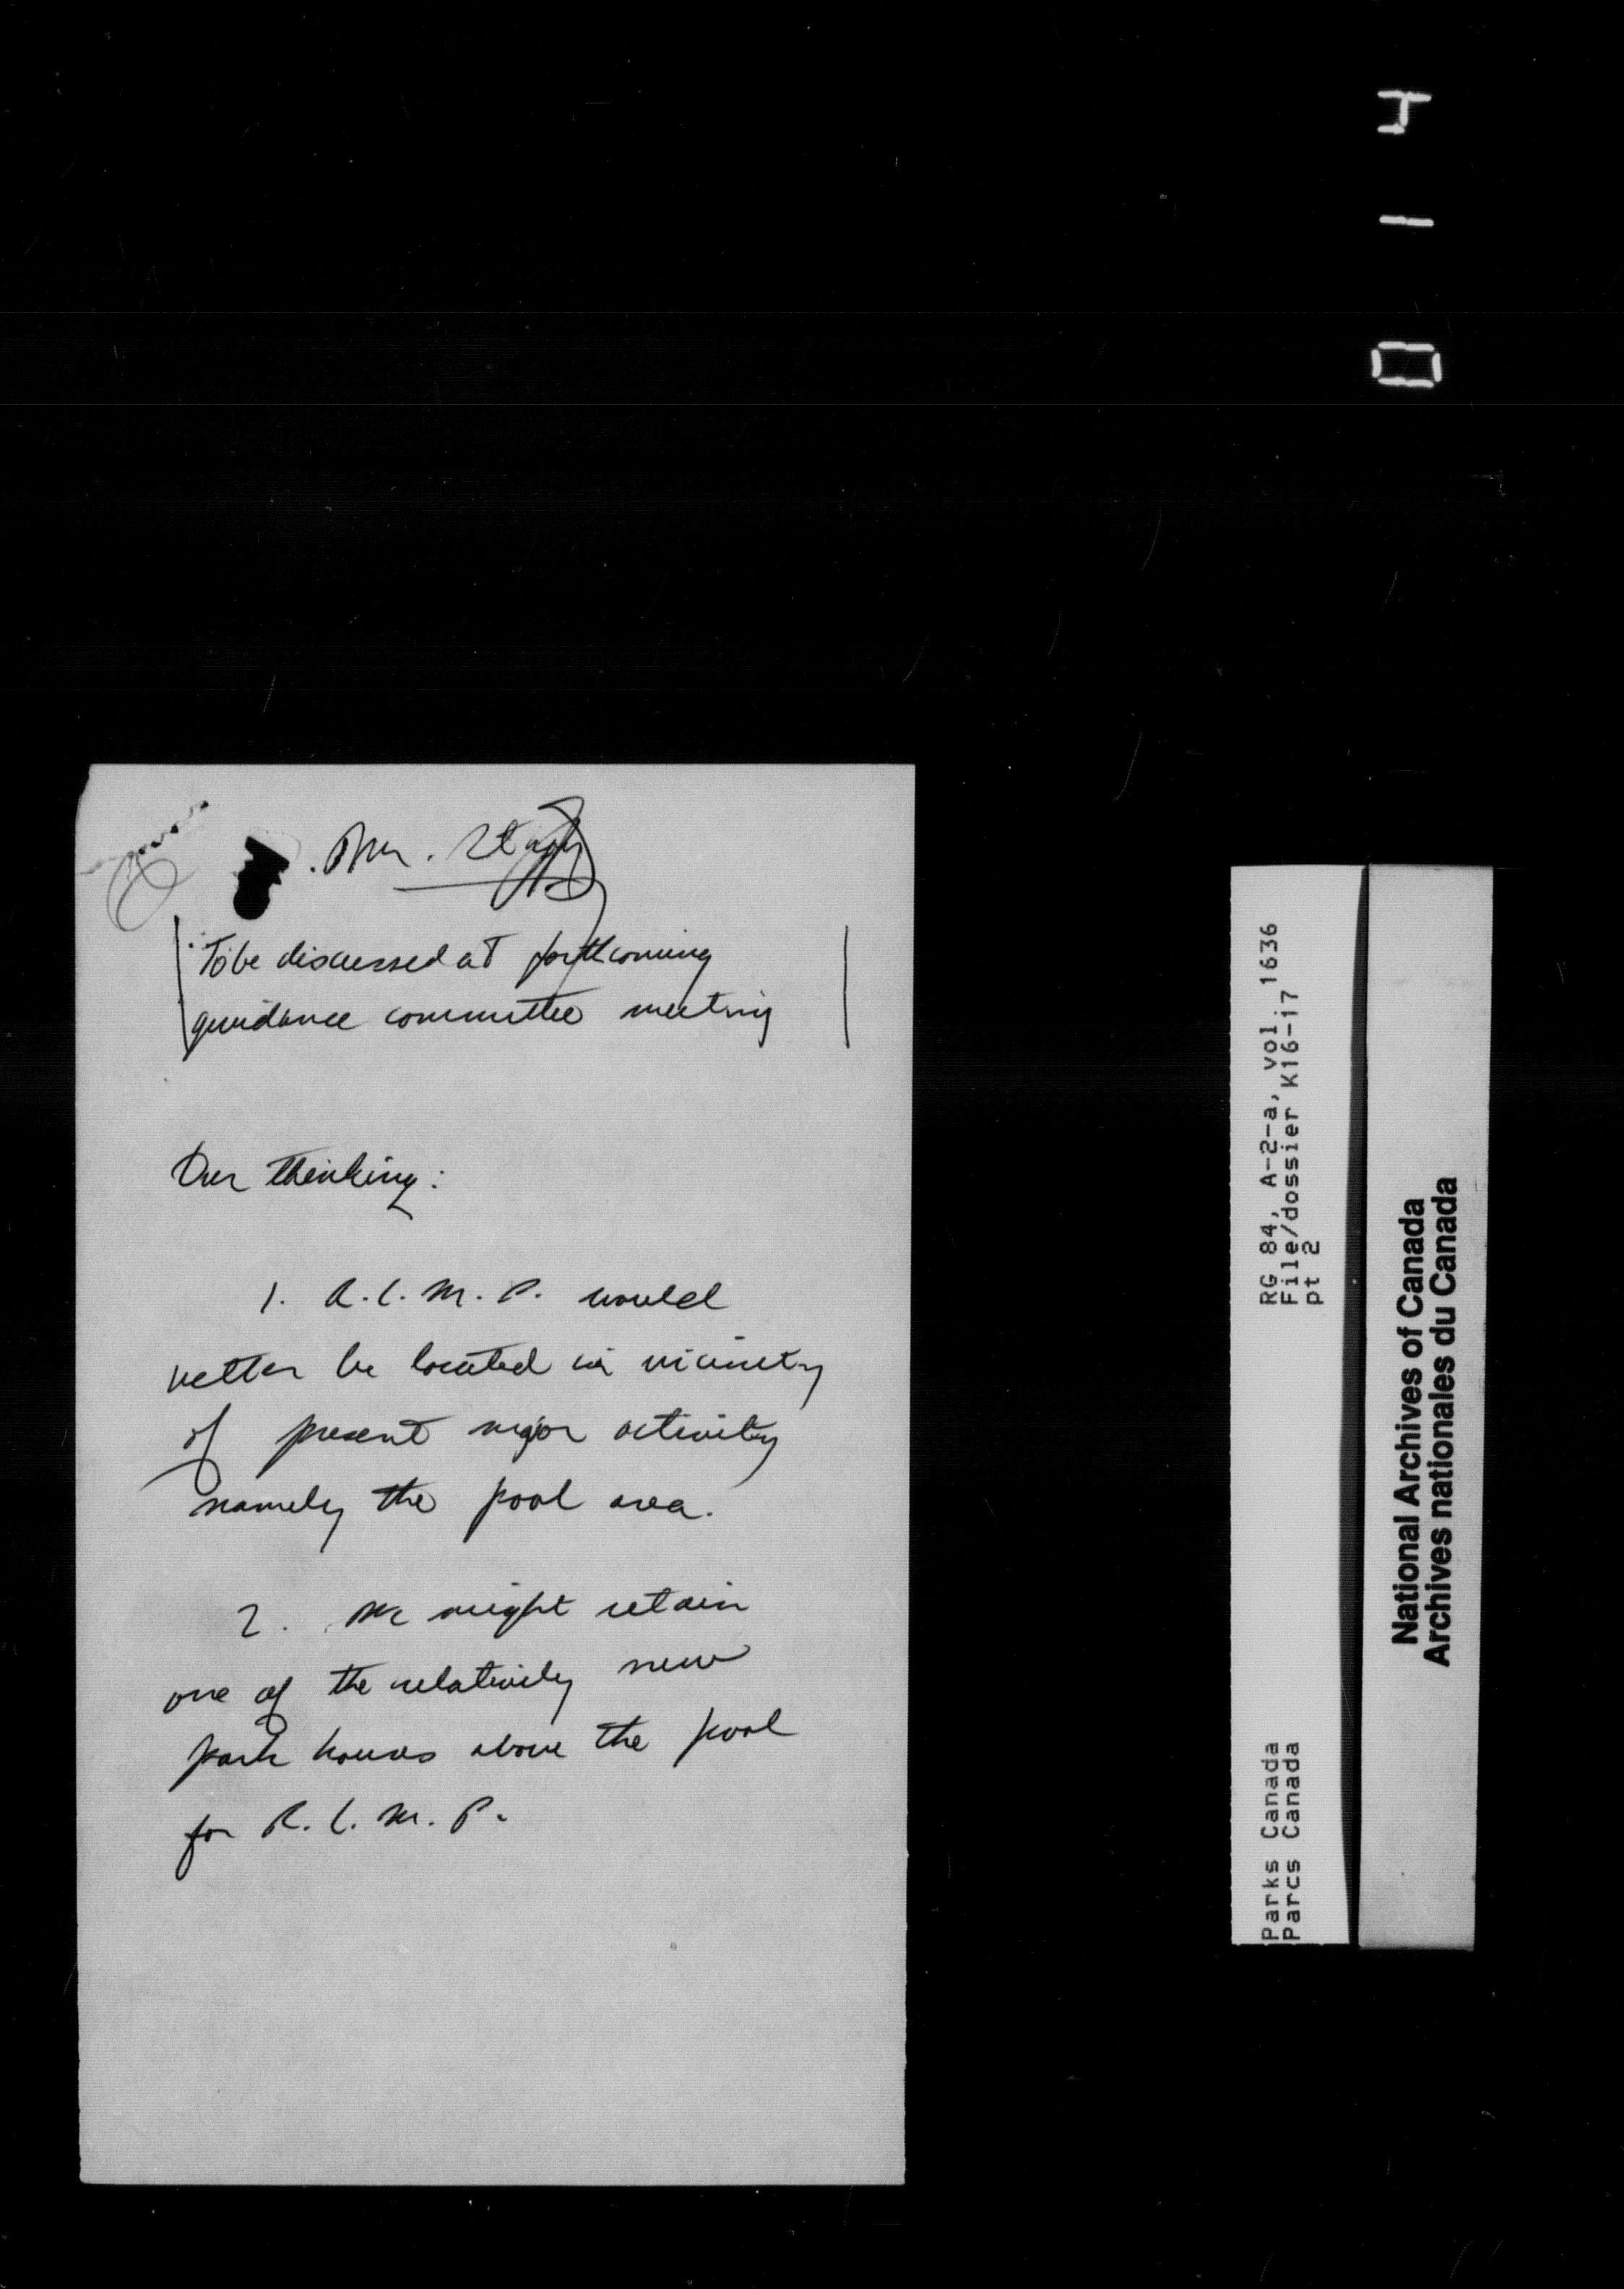 Mr.
To be discussed at forthcoming
guidance committee meeting
Our thinking:
1. R.C.M.P. would
better be located in vicinity
of present major activity
namely the pool area.
2. We might retain
one of the relatively new
park houses above the pool
for R.C.M.P.
RG 84, A-2-a, vol. 1636
File/dossier K16-17
pt 2
Parks Canada
Parcs Canada
National Archives of Canada
Archives nationales du Canada